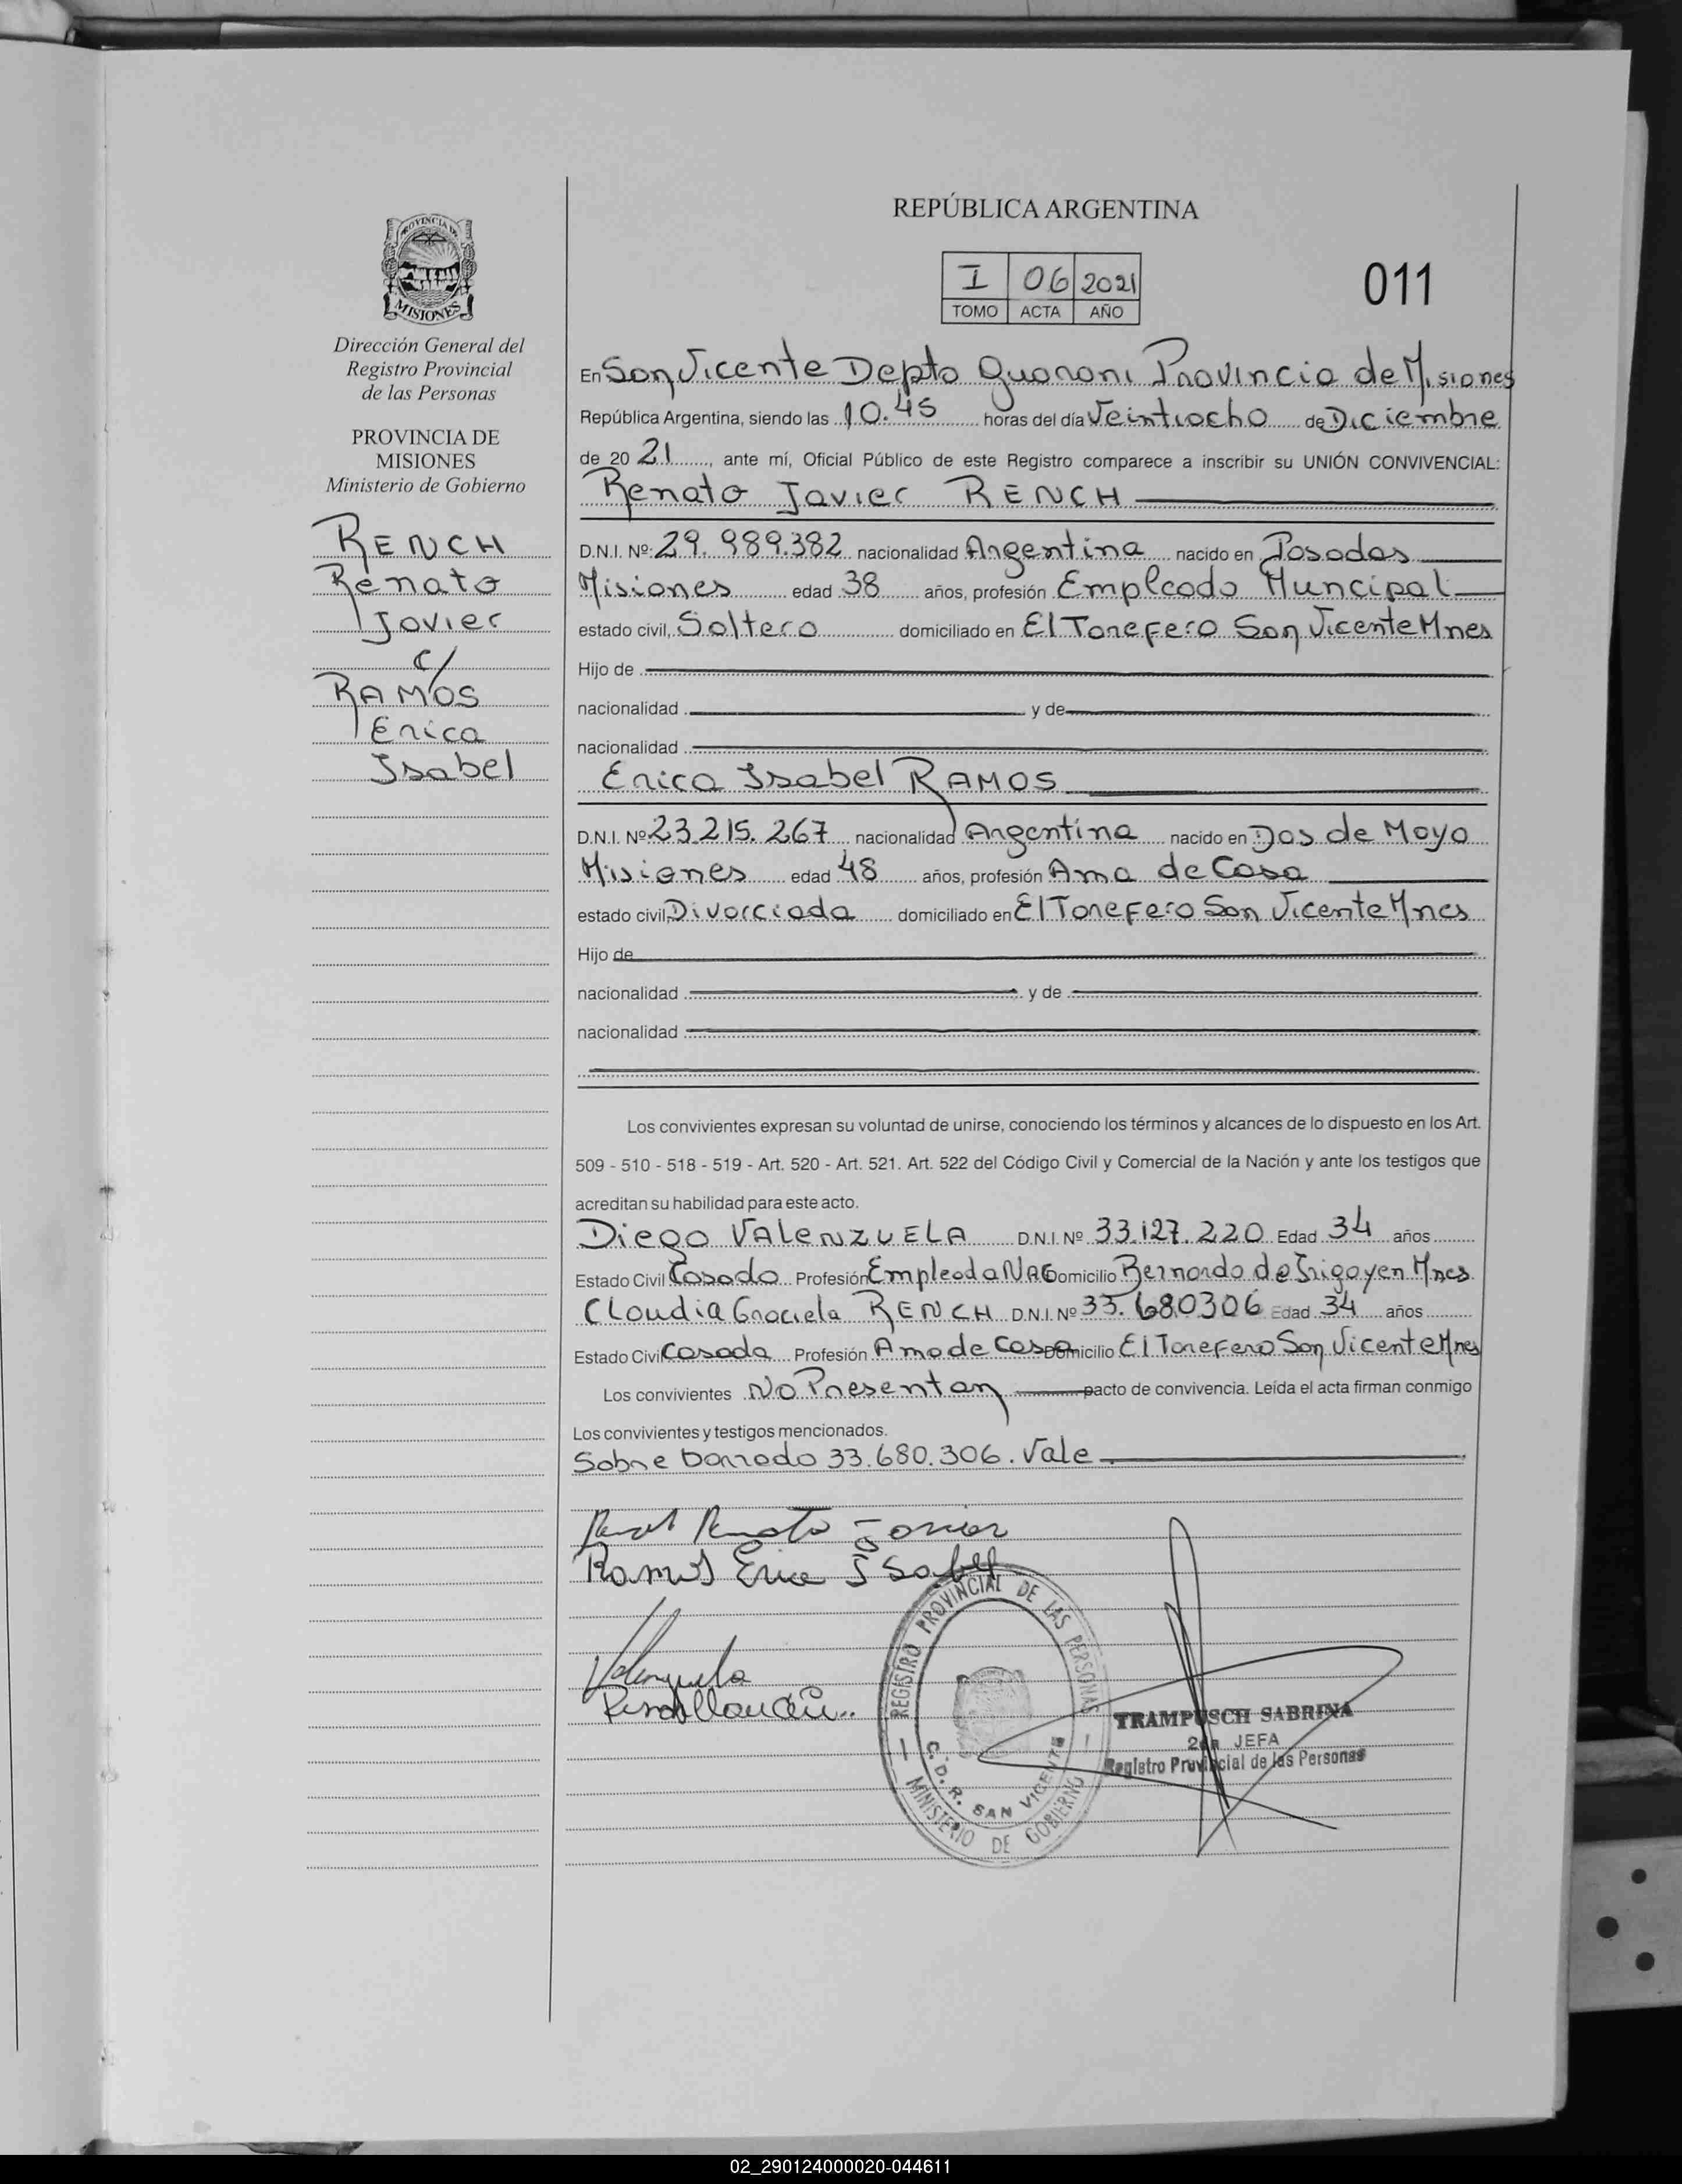 REPÚBLICA ARGENTINA
I 06 2021
TOMO ACTA AÑO
011
PROVINCIA DE
MISIONES
Dirección General del
Registro Provincial
de las Personas
PROVINCIA DE
MISIONES
Ministerio de Gobierno
RENCH
Renato
Javier
c/
RAMOS
Erica
Isabel
En San Vicente Depto Guarani Provincia de Misiones
República Argentina, siendo las 10.45 horas del día Veintiocho de Diciembre
de 20 21, ante mí, Oficial Público de este Registro comparece a inscribir su UNIÓN CONVIVENCIAL:
Renato Javier RENCH
D.N.I. Nº 29.989.382 nacionalidad Argentina nacido en Posadas
Misiones edad 38 años, profesión Empleado Muncipal
estado civil, Soltero domiciliado en El Torefero San Vicente Mnes
Hijo de
nacionalidad y de
nacionalidad
Erica Isabel RAMOS
D.N.I. Nº 23.215.267 nacionalidad Argentina nacido en Dos de Mayo
Misiones edad 48 años, profesión Ama de Casa
estado civil, Divorciada domiciliado en El Torefero San Vicente Mnes
Hijo de
nacionalidad y de
nacionalidad
Los convivientes expresan su voluntad de unirse, conociendo los términos y alcances de lo dispuesto en los Art.
509 - 510 - 518 - 519 - Art. 520 - Art. 521. Art. 522 del Código Civil y Comercial de la Nación y ante los testigos que
acreditan su habilidad para este acto.
Diego VALENZUELA D.N.I. Nº 33.127.220 Edad 34 años
Estado Civil Casado Profesión Empleada Domicilio Bernardo de Irigoyen Mnes
Claudia Graciela RENCH D.N.I. Nº 33.680306 Edad 34 años
Estado Civil Casada Profesión Ama de Casa Domicilio El Torefero San Vicente Mnes
Los convivientes No Presentan pacto de convivencia. Leída el acta firman conmigo
Los convivientes y testigos mencionados.
Sobre borrado 33.680.306. Vale
Renato Javier
Ramos Erica Isabel
Valenzuela
REGISTRO PROVINCIAL DE LAS PERSONAS
C.D.R. SAN VICENTE
MINISTERIO DE GOBIERNO
TRAMPUSCH SABRINA
2da JEFA
Registro Provincial de las Personas
02_290124000020-044611